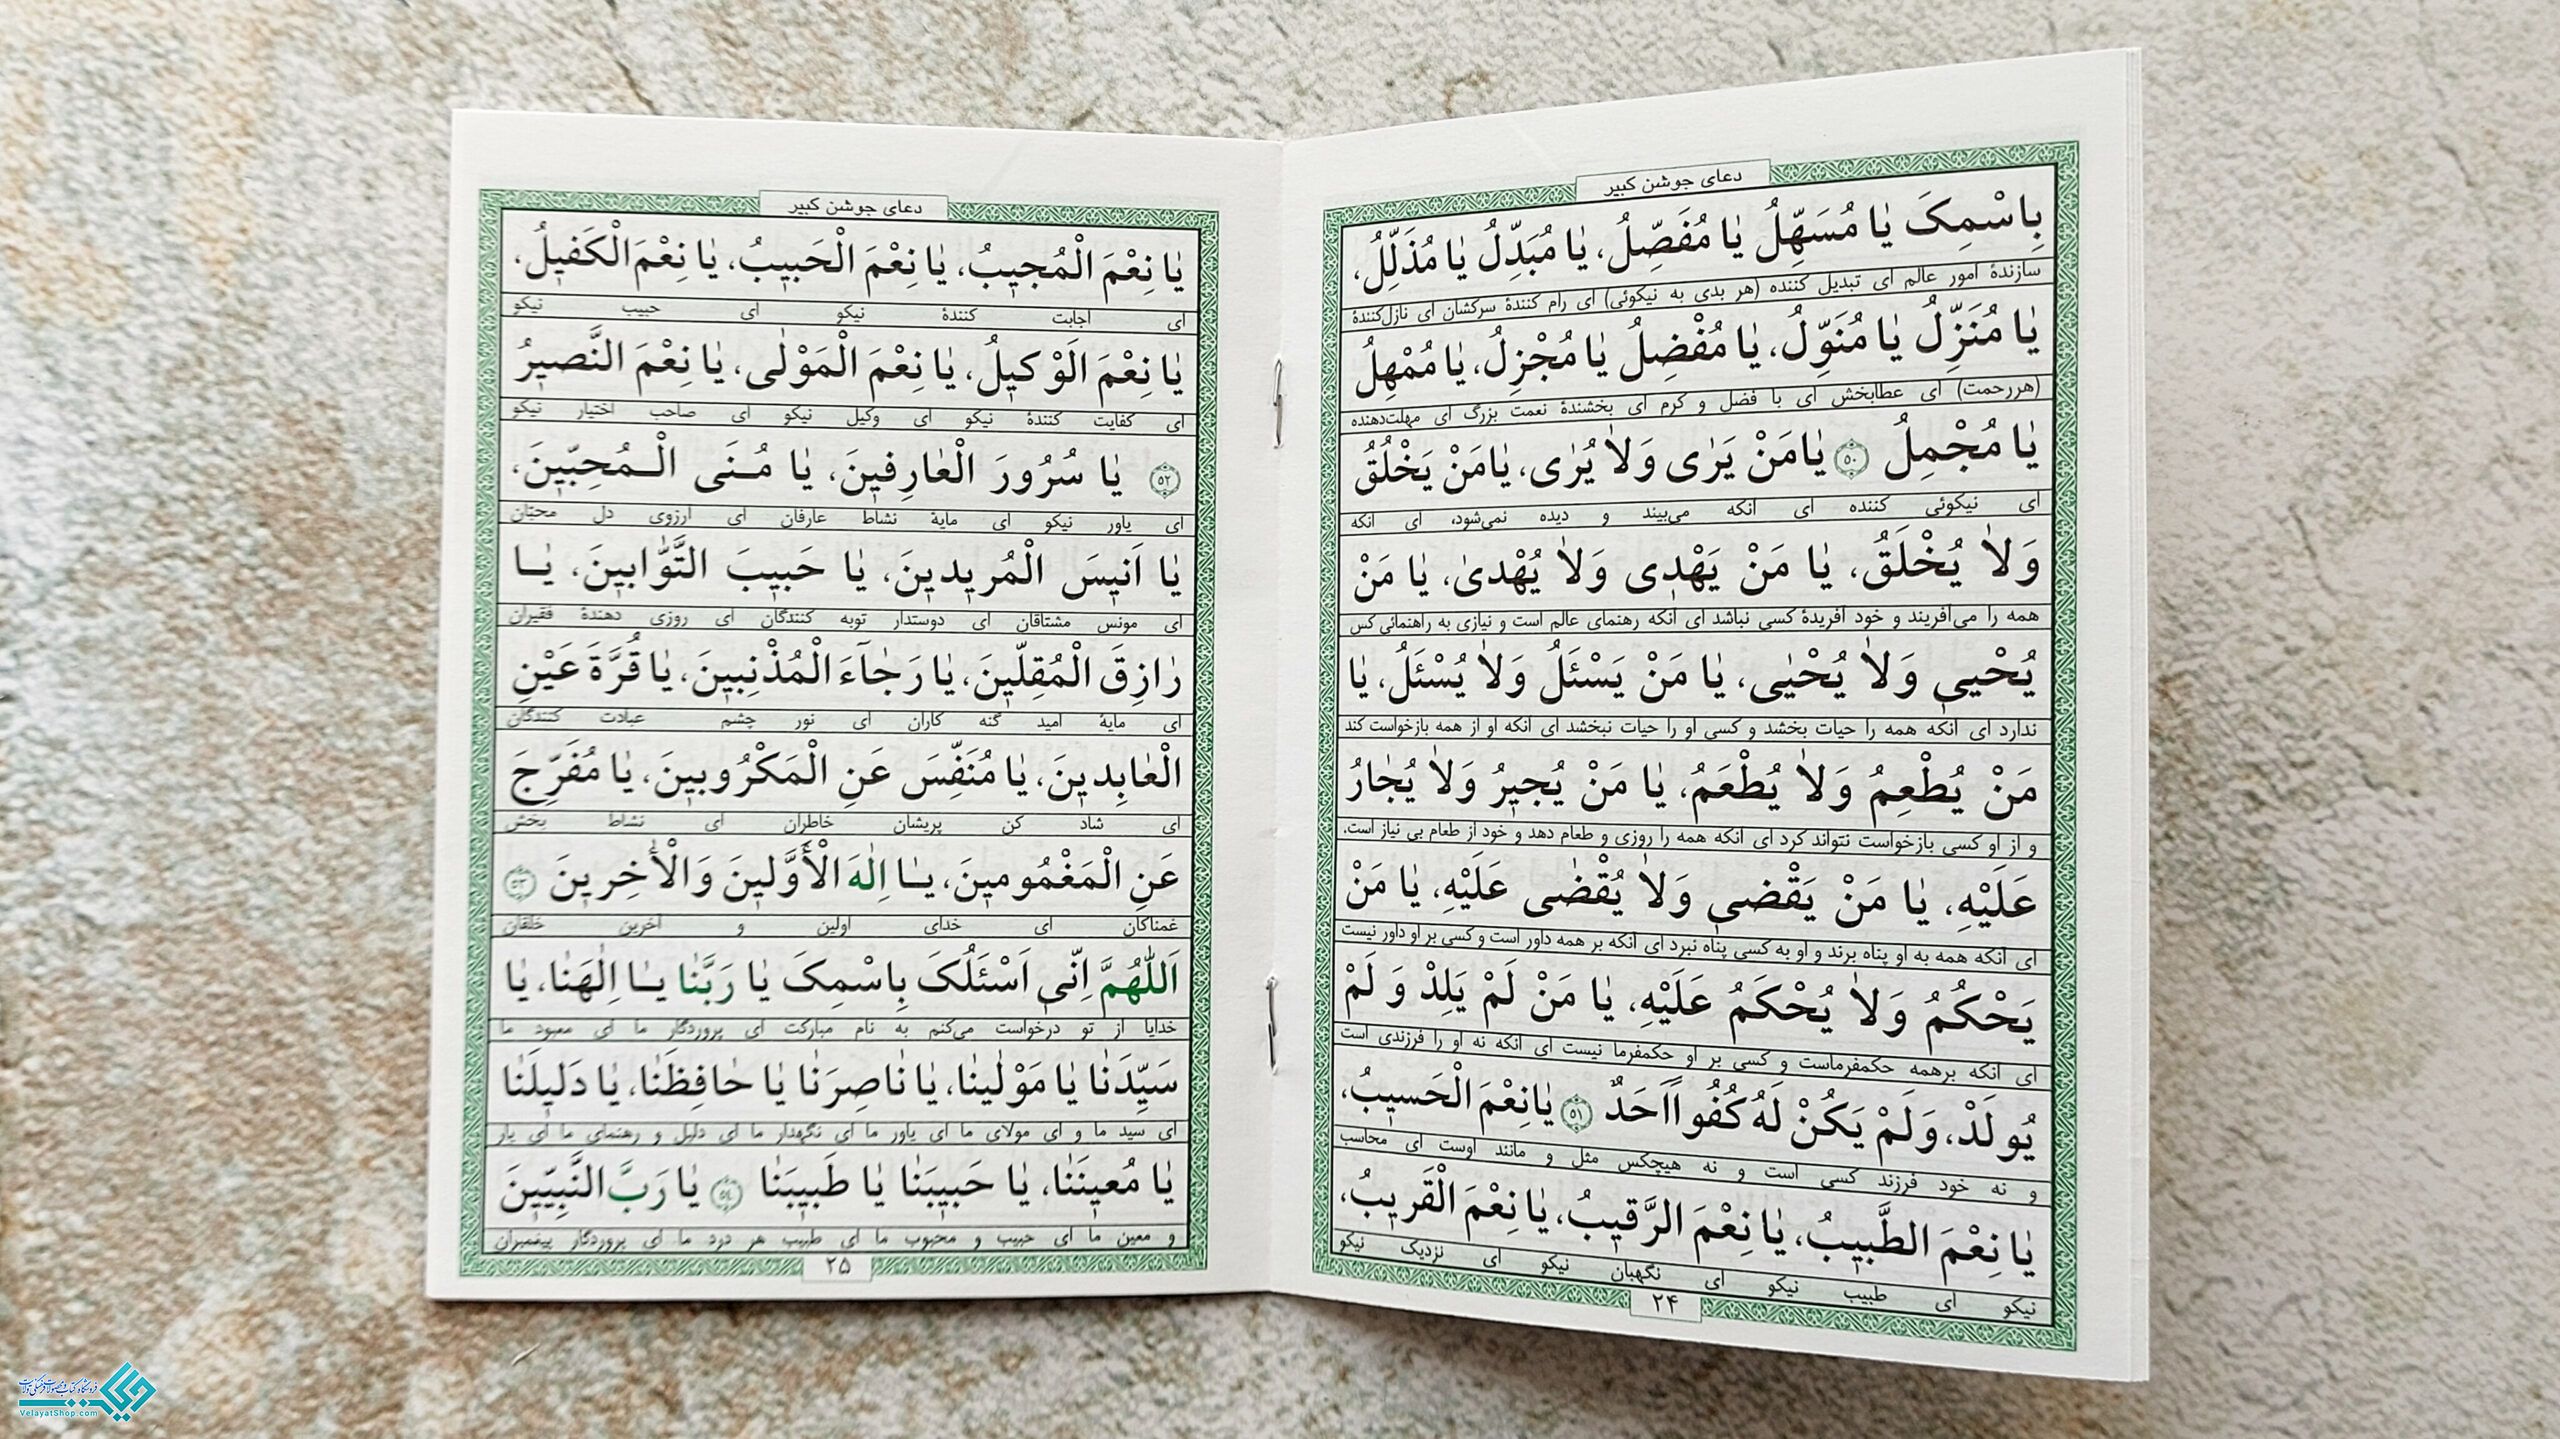 دعای جوشن کبیر
بِاسْمِکَ یٰا مُسَهِّلُ یٰا مُفَصِّلُ، یٰا مُبَدِّلُ یٰا مُذَلِّلُ،
سازندهٔ امور عالم ای تبدیل کننده (هر بدی به نیکوئی) ای رام کنندهٔ سرکشان ای نازل‌کنندهٔ
یٰا مُنَزِّلُ یٰا مُنَوِّلُ، یٰا مُفْضِلُ یٰا مُجْزِلُ، یٰا مُمْهِلُ
(هررحمت) ای عطابخش ای با فضل و کرم ای بخشندهٔ نعمت بزرگ ای مهلت‌دهنده
یٰا مُجْمِلُ ۵۰ یٰامَنْ یَرٰی وَلاٰ یُرٰی، یٰامَنْ یَخْلُقُ
ای نیکوئی کننده ای آنکه می‌بیند و دیده نمی‌شود، ای آنکه
وَلاٰ یُخْلَقُ، یٰا مَنْ یَهْدٖی وَلاٰ یُهْدیٰ، یٰا مَنْ
همه را می‌آفریند و خود آفریدهٔ کسی نباشد ای آنکه رهنمای عالم است و نیازی به راهنمائی کس
یُحْیٖی وَلاٰ یُحْیٰی، یٰا مَنْ یَسْئَلُ وَلاٰ یُسْئَلُ، یٰا
ندارد ای آنکه همه را حیات بخشد و کسی او را حیات نبخشد ای آنکه او از همه بازخواست کند
مَنْ یُطْعِمُ وَلاٰ یُطْعَمُ، یٰا مَنْ یُجٖیرُ وَلاٰ یُجٰارُ
و از او کسی بازخواست نتواند کرد ای آنکه همه را روزی و طعام دهد و خود از طعام بی نیاز است،
عَلَیْهِ، یٰا مَنْ یَقْضٖی وَلاٰ یُقْضٰی عَلَیْهِ، یٰا مَنْ
ای آنکه همه به او پناه برند و او به کسی پناه نبرد ای آنکه بر همه داور است و کسی بر او داور نیست
یَحْکُمُ وَلاٰ یُحْکَمُ عَلَیْهِ، یٰا مَنْ لَمْ یَلِدْ وَ لَمْ
ای آنکه برهمه حکمفرماست و کسی بر او حکمفرما نیست ای آنکه نه او را فرزندی است
یُولَدْ، وَلَمْ یَکُنْ لَهُ کُفُواً اَحَدٌ ۵۱ یٰانِعْمَ الْحَسٖیبُ،
و نه خود فرزند کسی است و نه هیچکس مثل و مانند اوست ای محاسب
یٰا نِعْمَ الطَّبٖیبُ، یٰا نِعْمَ الرَّقٖیبُ، یٰا نِعْمَ الْقَرٖیبُ،
نیکو ای طبیب نیکو ای نگهبان نیکو ای نزدیک نیکو
۲۴
دعای جوشن کبیر
یٰا نِعْمَ الْمُجٖیبُ، یٰا نِعْمَ الْحَبٖیبُ، یٰا نِعْمَ الْکَفٖیلُ،
ای اجابت کنندهٔ نیکو ای حبیب نیکو
یٰا نِعْمَ الْوَکٖیلُ، یٰا نِعْمَ الْمَوْلٰی، یٰا نِعْمَ النَّصٖیرُ
ای کفایت کنندهٔ نیکو ای وکیل نیکو ای صاحب اختیار نیکو
۵۲ یٰا سُرُورَ الْعٰارِفٖینَ، یٰا مُـنَی الْـمُحِبّٖینَ،
ای یاور نیکو ای مایهٔ نشاط عارفان ای آرزوی دل محبّان
یٰا اَنٖیسَ الْمُرٖیدٖینَ، یٰا حَبٖیبَ التَّوّٰابٖینَ، یٰـا
ای مونس مشتاقان ای دوستدار توبه کنندگان ای روزی دهندهٔ فقیران
رٰازِقَ الْمُقِلّٖینَ، یٰا رَجٰآءَ الْمُذْنِبٖینَ، یٰا قُرَّةَ عَیْنِ
ای مایهٔ امید گنه کاران ای نور چشم عبادت کنندگان
الْعٰابِدٖینَ، یٰا مُنَفِّسَ عَنِ الْمَکْرُوبٖینَ، یٰا مُفَرِّجَ
ای شاد کن پریشان خاطران ای نشاط بخش
عَنِ الْمَغْمُومٖینَ، یٰـا اِلٰهَ الْأَوَّلٖینَ وَالْأٰخِرٖینَ ۵۳
غمناکان ای خدای اولین و آخرین خلقان
اَللّٰهُمَّ اِنّٖی اَسْئَلُکَ بِاسْمِکَ یٰا رَبَّنٰا یٰـا اِلٰهَنٰا، یٰا
خدایا از تو درخواست می‌کنم به نام مبارکت ای پروردگار ما ای معبود ما
سَیِّدَنٰا یٰا مَوْلٰینٰا، یٰا نٰاصِرَنٰا یٰا حٰافِظَنٰا، یٰا دَلٖیلَنٰا
ای سید ما و ای مولای ما ای یاور ما ای نگهدار ما ای دلیل و رهنمای ما ای یار
یٰا مُعٖینَنٰا، یٰا حَبٖیبَنٰا یٰا طَبٖیبَنٰا ۵۴ یٰا رَبَّ النَّبِیّٖینَ
و معین ما ای حبیب و محبوب ما ای طبیب هر درد ما ای پروردگار پیغمبران
۲۵
VelayatShop.com